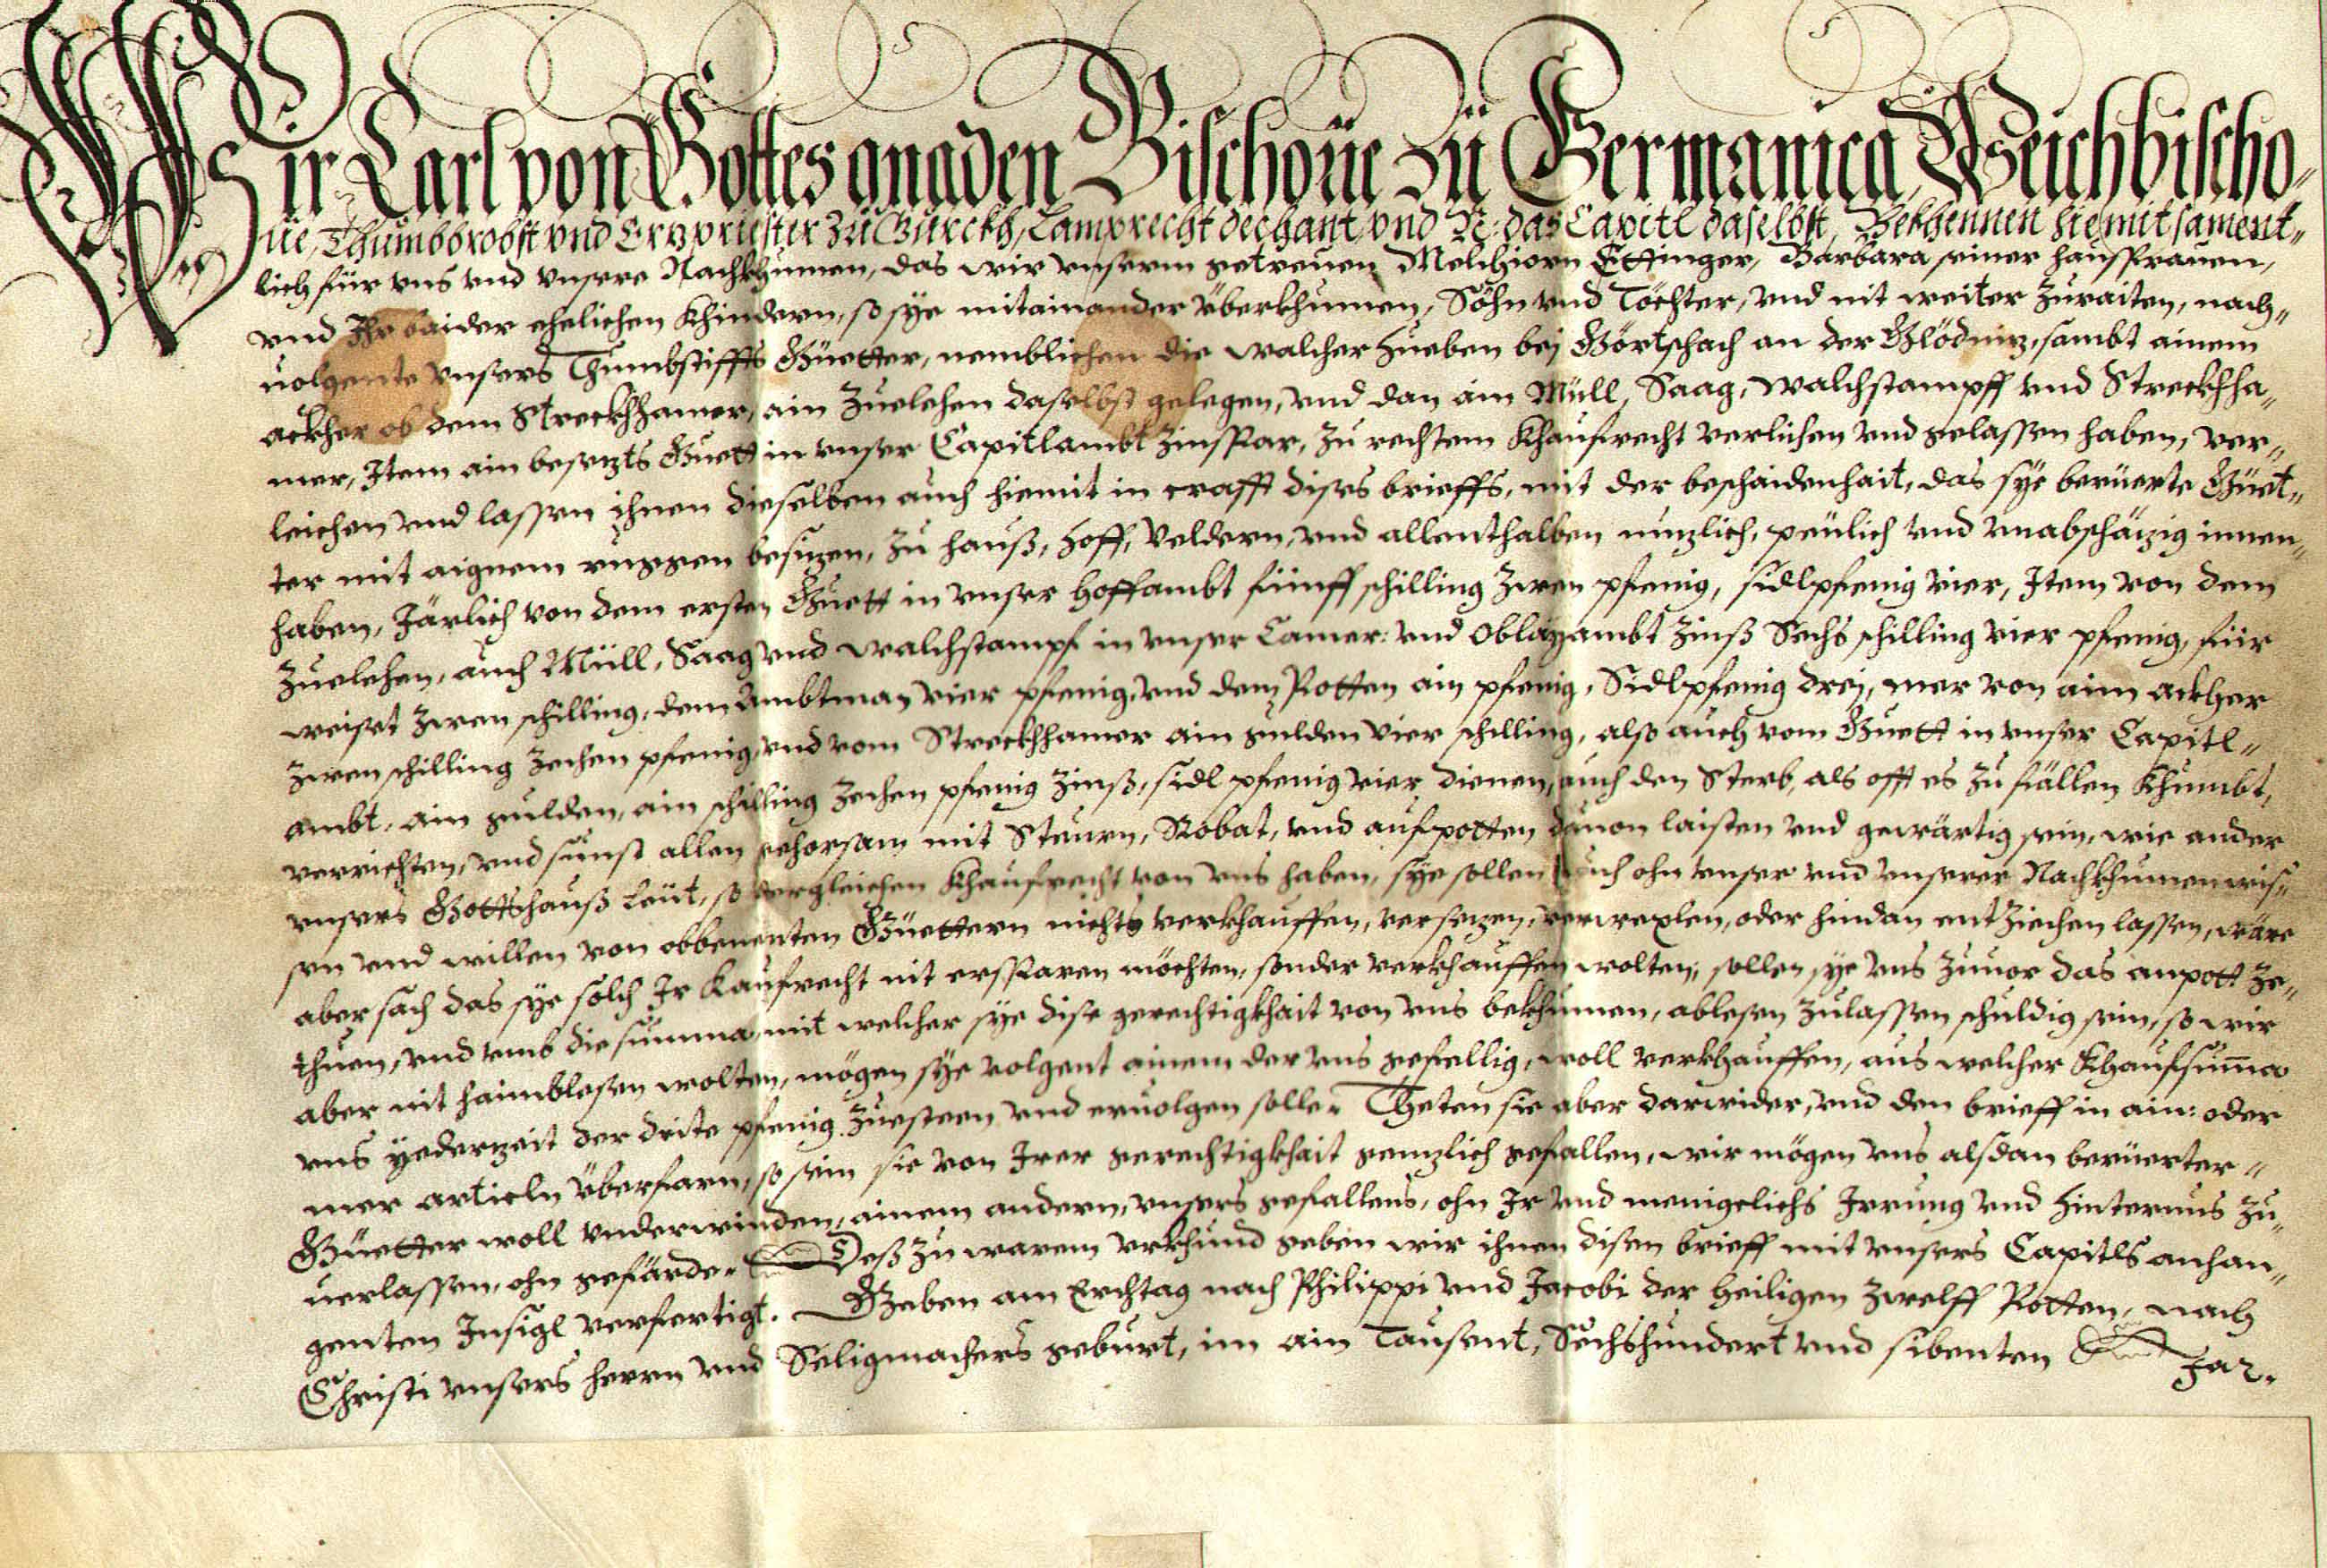 Wir Carl von Gottes gnaden Bischoue zu Germanica, Weichbischo„
ue, Thumbbrobst vnd Erzpriester zu Gurckh, Lamprecht dechant, vnd das Capitl daselbst, Bekhennen hiemit sament„
lich für vns vnd vnsere Nachkhumen, das wir vnserm getreuen Melchiorn Ettinger, Barbara seiner hausfrauen,
vnd Ihr baider ehelichen Khindern, so sÿe mitainander überkhumen, Söhn vnd Töchter, vnd nit weiter zuraiten, nach„
uolgente vnsers Thumbstiffts Güetter, nemblichen die walcher Hueben beÿ Görtschach an der Glödniz, sambt ainem
ackher ob dem Streckhhamer, ain Zuelehen daselbst gelegen, vnd dan ain Müll, Saag, Walchstampff vnd Streckhha„
mer, Item ain besezts Guett in vnser Capitlambt zinsspar, zu rechtem Khaufrecht verlichen vnd gelassen haben, ver„
leichen vnd lassen ihnen dieselben auch hiemit in crafft dises brieffs, mit der beschaidenhait, das sÿe berüerte Güet„
ter mit aignem ruggen besizen, zu hauß, hoff, Veldern, vnd allenthalben nuzlich, peulich vnd vnabschäzig innen„
haben, Järlich von dem ersten Guett in vnser hoffambt fünff schilling zwen pfenig, sidlpfenig vier, Item von dem
Zuelehen, auch Müll, Saag vnd walchstampf in vnser Camer: vnd Oblayambt Zinß Sechs schilling vier pfenig, für
weiset zwen schilling, dem Ambtman vier pfenig, vnd dem Potten ain pfenig, Sidlpfenig dreÿ, mer von aim ackher
zwen schilling zechen pfenig, vnd vom Streckhhamer ain gulden vier schilling, also auch vom Guett in vnser Capitl„
ambt, ain gulden, ain schilling zechen pfenig Zinß, sidl pfenig vier dienen, auch den Sterb, als offt es zu fällen khumbt,
verrichten, vnd sunst allen gehorsam mit Steurn, Robat, vnd aufpotten dauon laisten vnd gewärtig sein, wie ander
vnsers Gottshauß leüt, so dergleichen Khaufrecht von vns haben, sÿe sollen auch ohn vnser vnd vnserer Nachkhumen wis„
sen vnd willen von obbenenten Güettern nichts verkhauffen, versezen, verwexlen, oder hindan entziechen lassen, wäre
aber sach das sÿe solch Ir Kaufrecht nit ersparen möchten, sonder verkhauffen wolten, sollen sÿe vns zuuor das anpott ze„
thuen, vnd vmb die summa, mit welcher sÿe dise gerechtigkhait von vns bekhumen, ablesen zulassen schuldig sein, so wir
aber nit haimblesen wolten, mögen sÿe volgent ainem der vns gefellig, woll verkhauffen, aus welcher Khaufsum̅a
vns ÿederzeit der drite pfenig zuesteen vnd eruolgen solle. Theten sie aber darwider, vnd den brieff in ain: oder
mer articln überfarn, so sein sie von Irer gerechtigkhait genzlich gefallen, wir mögen vns alsdan berüerter„
Güetter woll vnderwinden, ainem andern, vnsers gefallens, ohn Ir vnd menigelichs Irrung vnd hinternus zu„
uerlassen, ohn gefärde. Deß zu warem vrkhund geben wir ihnen disen brieff mit vnsers Capitls anhan„
genten Insigl verfertigt. Geben am Erchtag nach Philippi vnd Jacobi der heiligen zwelff Potten, nach
Christi vnsers herrn vnd Seligmachers geburt, im ain Tausent, Sechshundert vnd sibenten Jar.